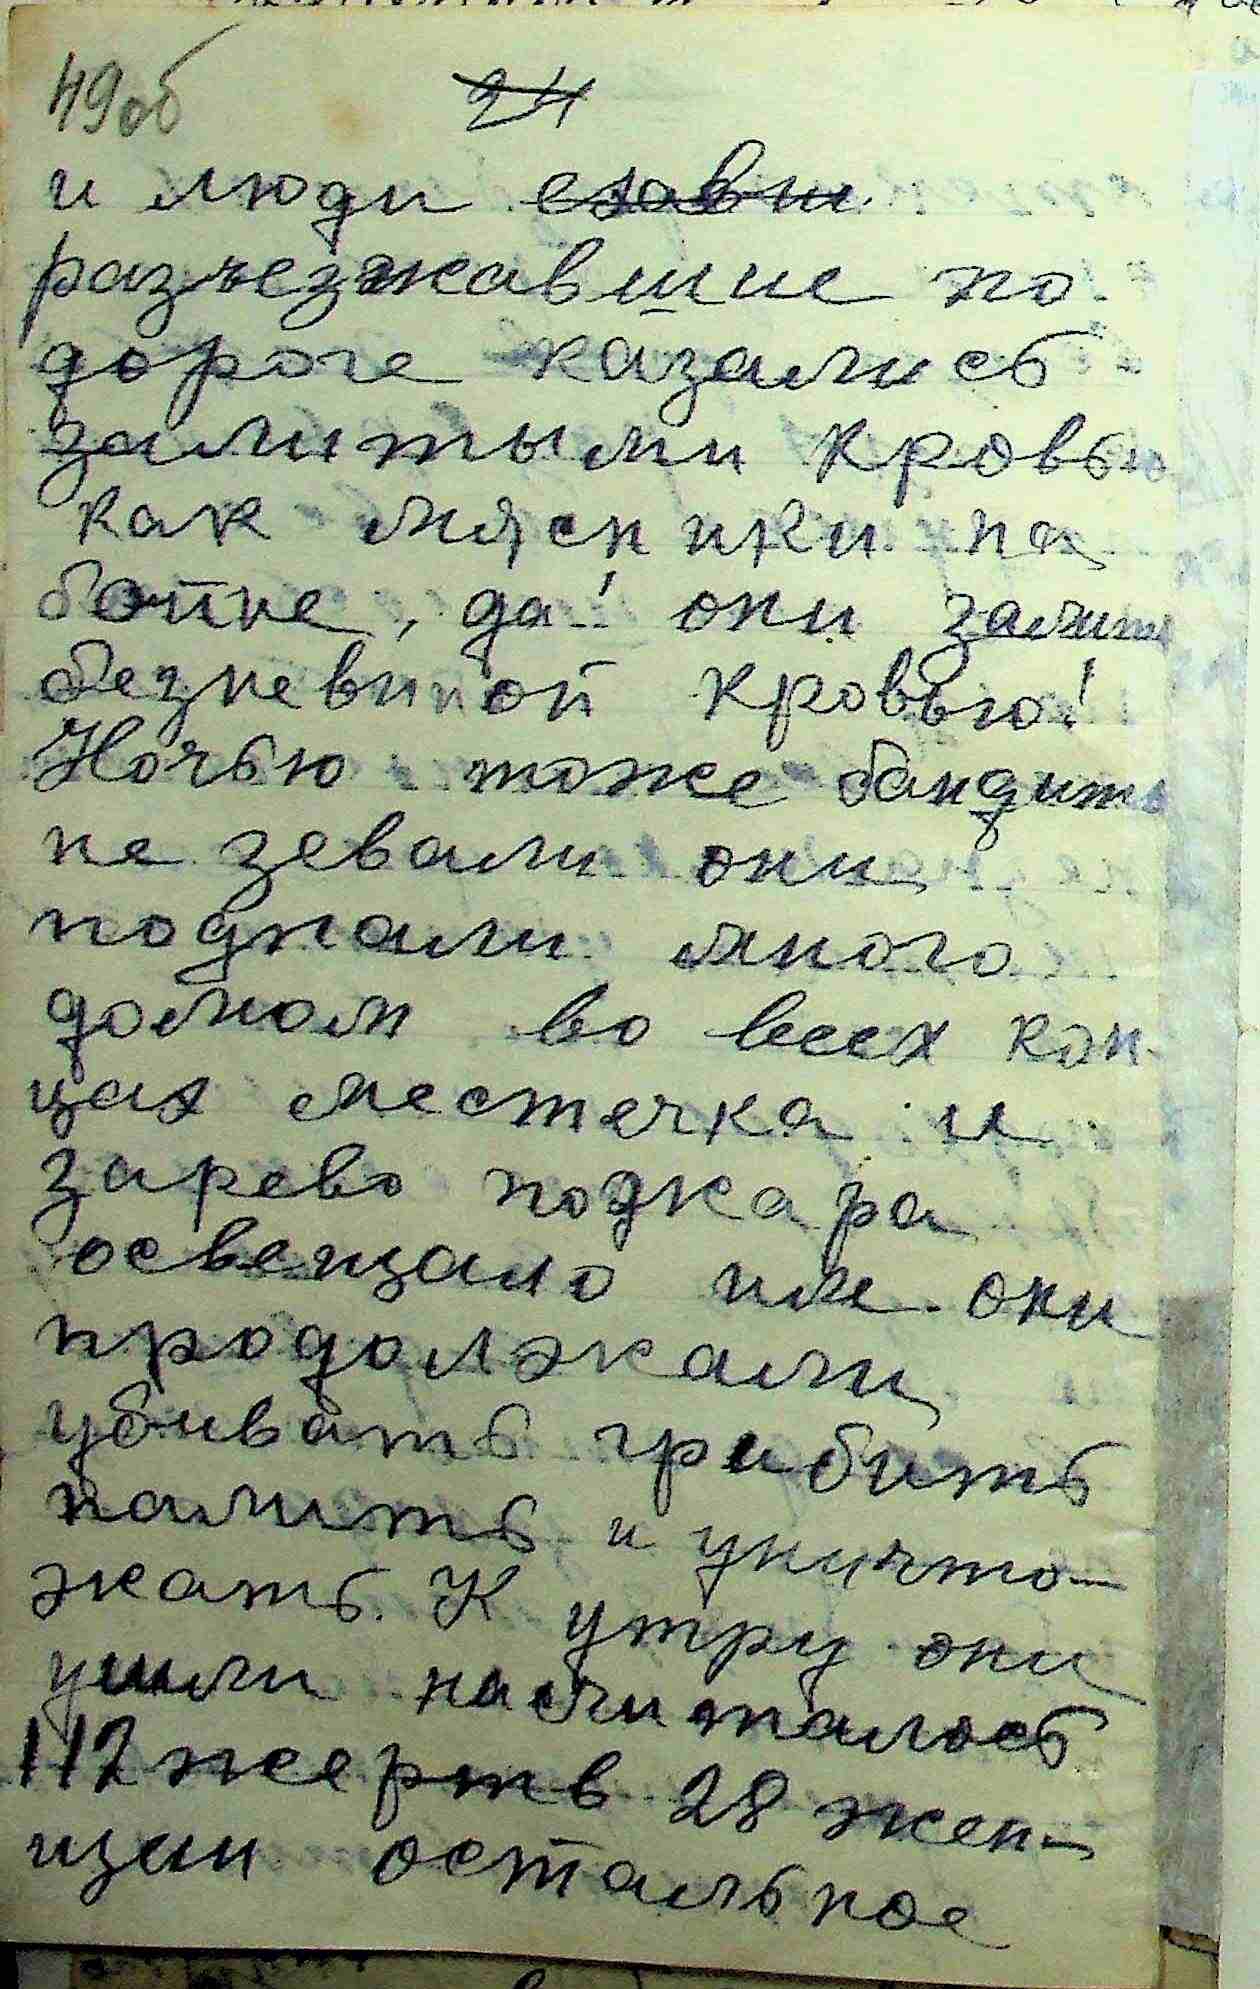 49об
24
и люди
разъезжавшие по
дороге казались
залитыми кровью
как мясники на
бойне, да! они залиты
безневиной кровью!
Ночью тоже бандиты
не зевали они
поднали много
домом во всех кон-
цах местечка и
зарево подкара
освещало им они
продолжали
убивать грабить
палить и уничто-
жать. К утру они
ушли насчиталось
112 жертв 28 жен-
щин остальное